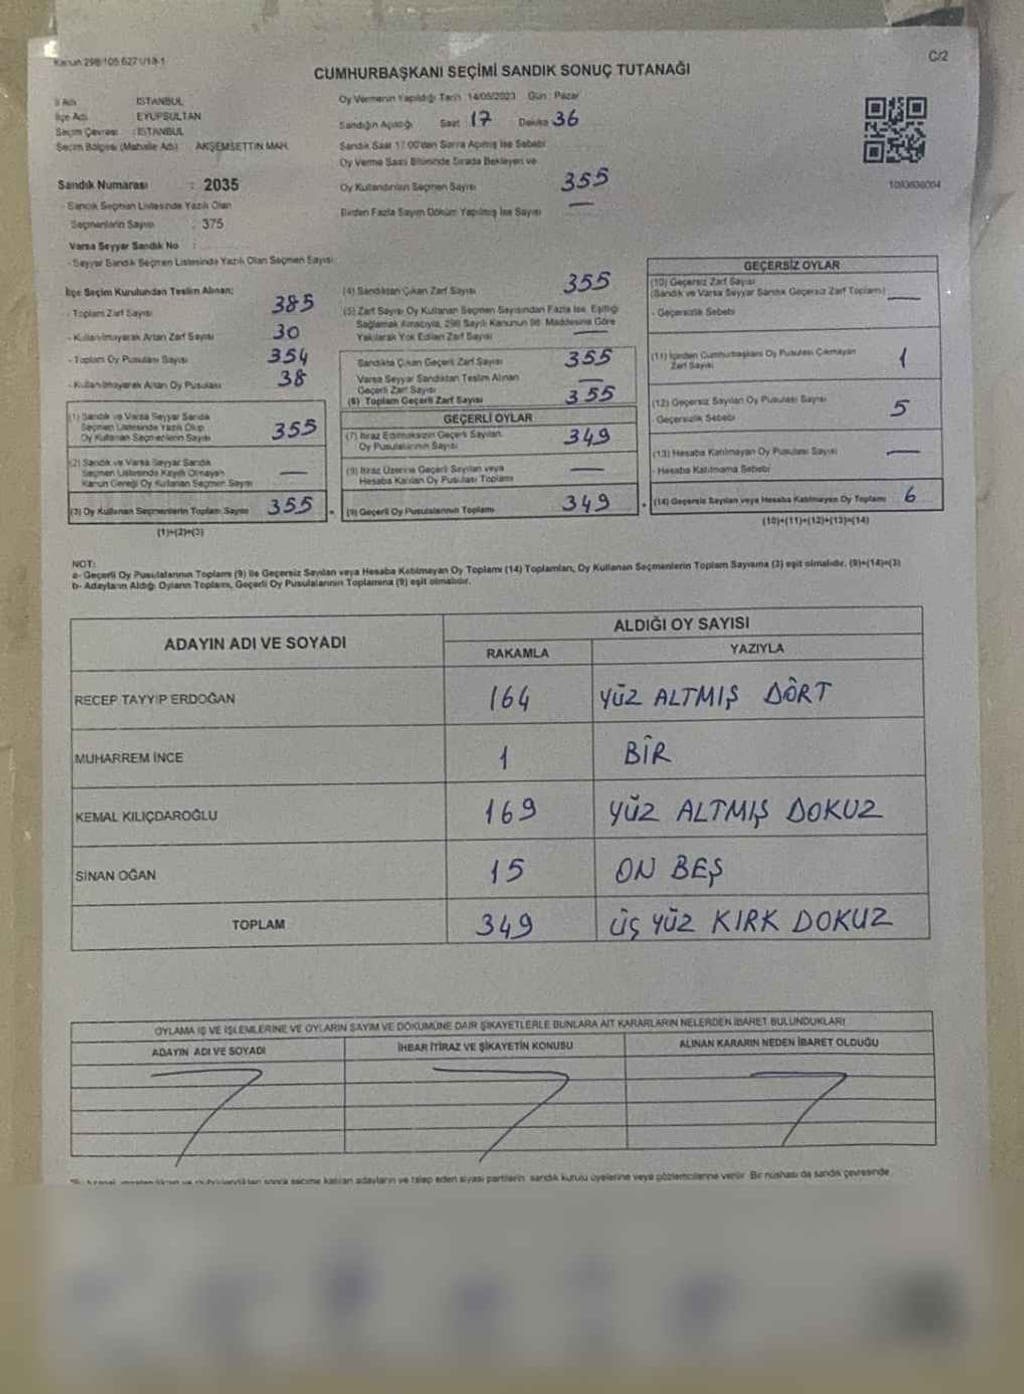 Kanun 298/105 6271/19-1
C/2
CUMHURBAŞKANI SEÇİMİ SANDIK SONUÇ TUTANAĞI
İl Adı İSTANBUL
İlçe Adı EYÜPSULTAN
Seçim Çevresi : İSTANBUL
Seçim Bölgesi (Mahalle Adı) AKŞEMSETTİN MAH.
Sandık Numarası : 2035
- Sandık Seçmen Listesinde Yazılı Olan
Seçmenlerin Sayısı : 375
Varsa Seyyar Sandık No :
- Seyyar Sandık Seçmen Listesinde Yazılı Olan Seçmen Sayısı:
Oy Vermenin Yapıldığı Tarih 14/05/2023 Gün : Pazar
Sandığın Açıldığı Saat 17 Dakika 36
Sandık Saat 17:00'dan Sonra Açılmış İse Sebebi
Oy Verme Saati Bitiminde Sırada Bekleyen ve
Oy Kullandırılan Seçmen Sayısı 355
Birden Fazla Sayım Döküm Yapılmış İse Sayısı —
1093636004
İlçe Seçim Kurulundan Teslim Alınan:
- Toplam Zarf Sayısı 385
- Kullanılmayarak Artan Zarf Sayısı 30
- Toplam Oy Pusulası Sayısı 354
- Kullanılmayarak Artan Oy Pusulası 38
(1) Sandık ve Varsa Seyyar Sandık
Seçmen Listesinde Yazılı Olup
Oy Kullanan Seçmenlerin Sayısı 355
(2) Sandık ve Varsa Seyyar Sandık
Seçmen Listesinde Kayıtlı Olmayan
Kanun Gereği Oy Kullanan Seçmen Sayısı —
(3) Oy Kullanan Seçmenlerin Toplam Sayısı 355
(1)+(2)=(3)
(4) Sandıktan Çıkan Zarf Sayısı 355
(5) Zarf Sayısı Oy Kullanan Seçmen Sayısından Fazla İse, Eşitliği
Sağlamak Amacıyla, 298 Sayılı Kanunun 98. Maddesine Göre
Yakılarak Yok Edilen Zarf Sayısı —
Sandıkta Çıkan Geçerli Zarf Sayısı 355
Varsa Seyyar Sandıktan Teslim Alınan
Geçerli Zarf Sayısı —
(6) Toplam Geçerli Zarf Sayısı 355
GEÇERLİ OYLAR
(7) İtiraz Edilmeksizin Geçerli Sayılan
Oy Pusulalarının Sayısı 349
(8) İtiraz Üzerine Geçerli Sayılan veya
Hesaba Katılan Oy Pusulası Toplamı —
(9) Geçerli Oy Pusulalarının Toplamı 349
GEÇERSİZ OYLAR
(10) Geçersiz Zarf Sayısı
(Sandık ve Varsa Seyyar Sandık Geçersiz Zarf Toplamı) —
- Geçersizlik Sebebi
(11) İçinden Cumhurbaşkanı Oy Pusulası Çıkmayan
Zarf Sayısı 1
(12) Geçersiz Sayılan Oy Pusulası Sayısı 5
Geçersizlik Sebebi
(13) Hesaba Katılmayan Oy Pusulası Sayısı —
- Hesaba Katılmama Sebebi
(14) Geçersiz Sayılan veya Hesaba Katılmayan Oy Toplamı 6
(10)+(11)+(12)+(13)=(14)
NOT:
a- Geçerli Oy Pusulalarının Toplamı (9) ile Geçersiz Sayılan veya Hesaba Katılmayan Oy Toplamı (14) Toplamları, Oy Kullanan Seçmenlerin Toplam Sayısına (3) eşit olmalıdır. (9)+(14)=(3)
b- Adayların Aldığı Oyların Toplamı, Geçerli Oy Pusulalarının Toplamına (9) eşit olmalıdır.
ADAYIN ADI VE SOYADI ALDIĞI OY SAYISI
RAKAMLA YAZIYLA
RECEP TAYYİP ERDOĞAN 164 YÜZ ALTMIŞ DÖRT
MUHARREM İNCE 1 BİR
KEMAL KILIÇDAROĞLU 169 YÜZ ALTMIŞ DOKUZ
SİNAN OĞAN 15 ON BEŞ
TOPLAM 349 ÜÇ YÜZ KIRK DOKUZ
OYLAMA İŞ VE İŞLEMLERİNE VE OYLARIN SAYIM VE DÖKÜMÜNE DAİR ŞİKAYETLERLE BUNLARA AİT KARARLARIN NELERDEN İBARET BULUNDUKLARI
ADAYIN ADI VE SOYADI İHBAR İTİRAZ VE ŞİKAYETİN KONUSU ALINAN KARARIN NEDEN İBARET OLDUĞU
sonra seçime katılan adayların ve talep eden siyasi partilerin sandık kurulu üyelerine veya gözlemcilerine verilir. Bir nüshası da sandık çevresinde